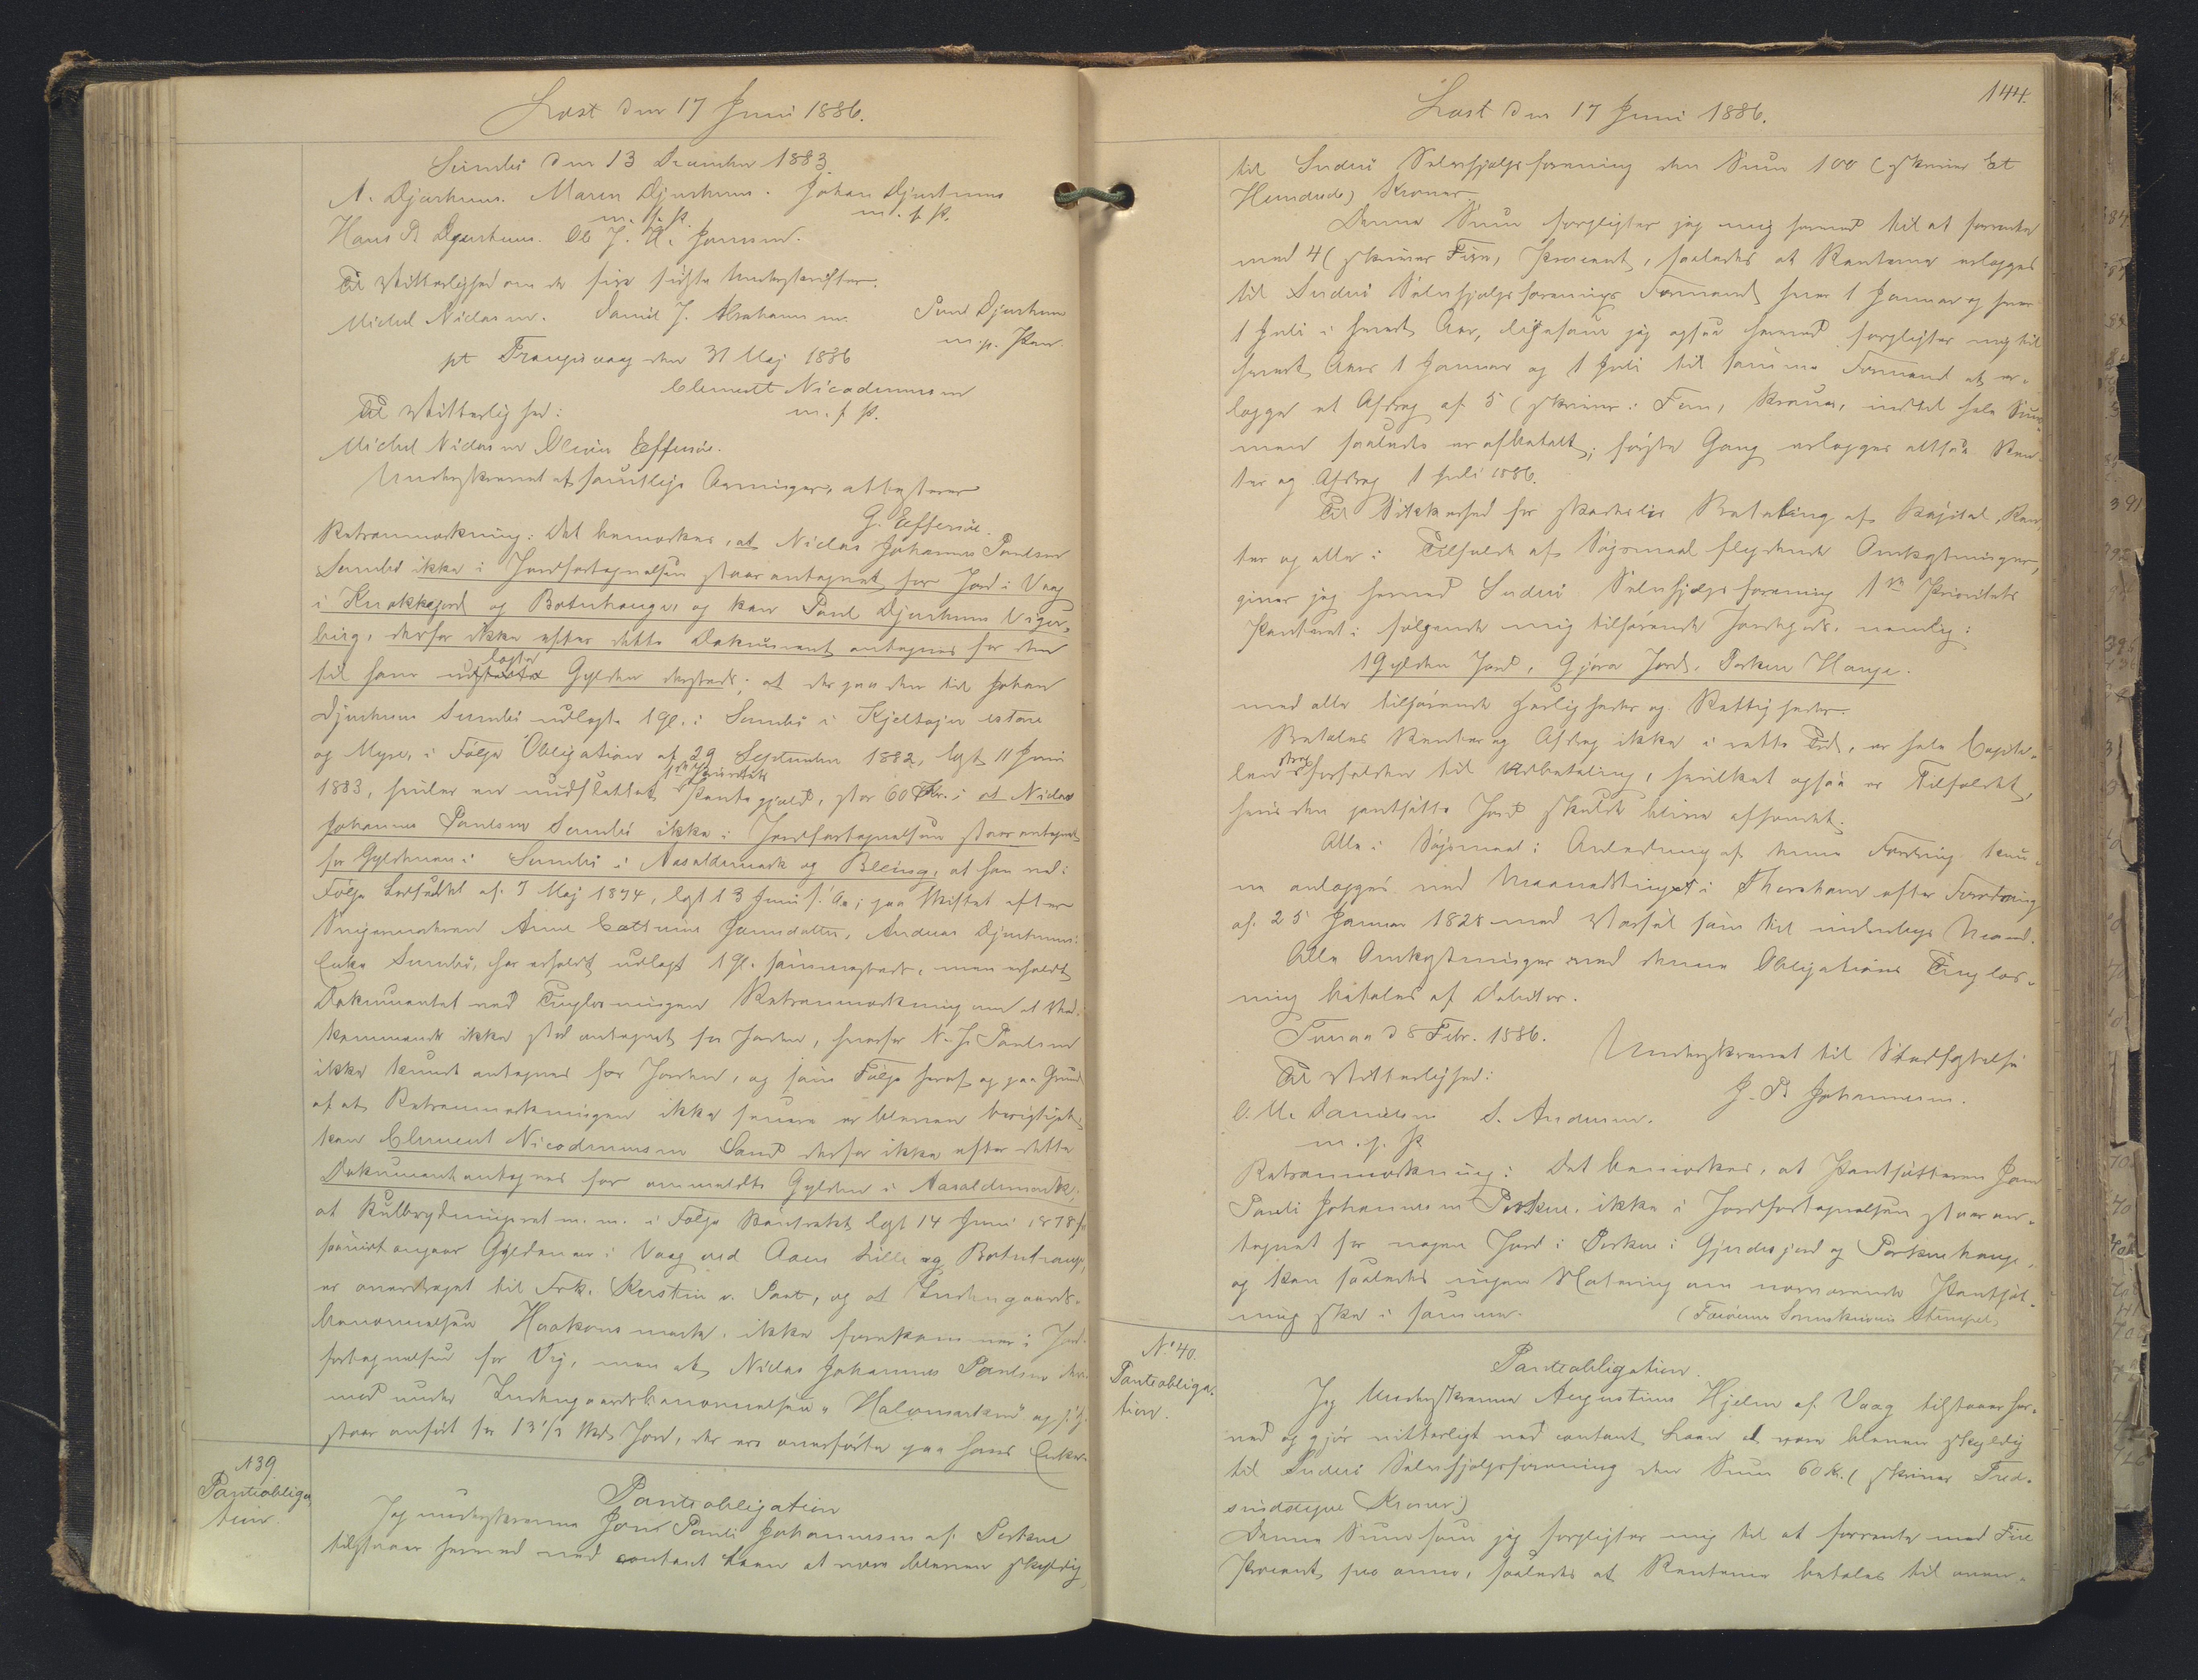 Læst den 17 Juni 1886.
Sumbø den 13 December 1883.
A. Djurhuus. Maren Djurhuus. Johan Djurhuus
m. f. P. m. f. P.
Hans P. Djurhuus. Ole J. A. Joensen.
Til Vitterlighed om de fire sidste Underskrifter.
Michel Niclasen. Daniel J. Abrahamsen. Poul Djurhuus
m. p. Pen.
pt Trangisvaag den 31 Maj 1886
Clementt Nicodemussen
m. f. P.
Til Vitterlighed:
Michel Niclasen Oliver Effersøe.
Underskrevet af samtlige Arvinger, attesterer
G. Effersøe.
Retsanmærkning: Det bemærkes, at Niclas Johannes Poulsen
Sumbø ikke i Jordfortegnelsen staar antegnet for Jord i Vaag
i Knokkagerd og Botnhauge, og kan Poul Djurhuus Vigar-
birg, derfor ikke efter dette Dokument antegnes for den
til ham udlagte Gylden dersteds; at der paa den til Johan
Djurhuus Sumbø udlagte 1 gl. i Sumbø i Kjeltajer vestare
og Myre, i Følge Obligation af 29 September 1882, lgst 11 Juni
1883, hviler en uudslettet 1ste Prioritets Pantegjæld, stor 60 Kr.; at Niclas
Johannes Poulsen Sumbø ikke i Jordfortegnelsen staar antegnet
for Gyldenen i Sumbø i Aasaldemark og Bleiing, at han ved i
Følge Lodseddel af 7 Maj 1874, lgst 13 Juni s. A.; paa Skiftet efter
Svigermoderen Anne Cathrine Joensdatter, Andreas Djurhuus
Enke Sumbø, har erholdt udlagt 1 gl. sammesteds, men erholdt
Dokumentet ved Tinglæsningen Retsanmærkning om at Ved-
kommende ikke stod antegnet for Jorden, hvorfor N. J. Poulsen
ikke kunde antegnes for Jorden, og som Følge heraf og paa Grund
af at Retsanmærkningen ikke senere er bleven berigtiget
kan Clement Nicodemussen Sand derfor ikke efter dette
Dokument antegnes for ommeldte Gylden i Aasaldemark;
at Kulbrydningsret m. m. i Følge Kontrakt lgst 14 Juni 1878 for
saavidt angaar Gyldenen i Vaag ved Aaen Lille og Botnhauge,
er overdraget til Frk. Kerstin v. Post, og at Indengaards-
benævnelsen Haakonsmarke, ikke forekommer i Jord-
fortegnelsen for Vg, men at Niclas Johannes Poulsen der-
med under Indengaardsbenævnelsen "Halvmarken" og fl.
staar anført for 13 1/2 Md. Jord, der ere overførte paa hans Enke.
№ 39
Panteobliga-
tion.
Panteobligation
Jeg underskrevne Joen Pauli Johannesen af Porkere
tilstaaer herved ved contant Laan at være bleven skyldig
144.
Læst den 17 Juni 1886.
til Suderø Selvhjælpsforening den Sum 100 (skriver Et
Hundrede) Kroner.
Denne Sum forpligter jeg mig herved til at forrente
med 4 (skriver Fire) Procent, saaledes at Renterne erlægges
til Suderø Selvhjælpsforenings Formand hver 1 Januar og hver
1 Juli i hvert Aar, ligesom jeg ogsaa herved forpligter mig til
hvert Aars 1 Januar og 1 Juli til samme Formand at er-
lægge et Afdrag af 5 (skriver: Fem) Kroner, indtil hele Sum-
men saaledes er afbetalt; første Gang erlægges altsaa Ren-
ter og Afdrag 1 Juli 1886.
Til Sikkerhed for skadesløs Betaling af Kapital, Ren-
ter og alle i Tilfælde af Søgsmaal flydende Omkostninger,
giver jeg herved Suderø Selvhjælpsforening 1ste Prioritets
Panteret i følgende mig tilhørende Jordgods, nemlig:
1 Gylden Jord, Gjøra Jord, Porkere Hauge.
med alle tilhørende Herligheder og Rettigheder.
Betales Renter og Afdrag ikke i rette Tid, er hele Capita-
len strax forfalden til Udbetaling, hvilket ogsaa er Tilfældet,
hvis den pantsatte Jord skulde blive afhændet.
Alle i Søgsmaal i Anledning af denne Fordring kun-
ne anlægges ved Maanedstinget i Thorshavn efter Forordning
af 25 Januar 1828 med Varsel som til indenbygs Mænd.
Alle Omkostninger med denne Obligations Tinglæs-
ning betales af Debitor.
Famien d 8 Febr. 1886.
Underskrevet til Stadfæstelse
Til Vitterlighed:
J. P. Johannesen.
O. M. Danielsen S. Andersen.
m. f. P.
Retsanmærkning: Det bemærkes, at Pantsætteren Joen
Pauli Johannesen Porkere, ikke i Jordfortegnelsen staar an-
tegnet for nogen Jord i Porkere i Gjerdesjord og Porkerehauge,
og kan saaledes ingen Notering om nærværende Pantsæt-
ning ske i samme. (Færøernes Sorenskriveris Stempel)
No 40.
Panteobliga-
tion.
Panteobligation.
Jeg Underskrevne Augustinus Hjelm af Vaag tilstaaer her-
ved og gjør vitterligt ved contant Laan at være bleven skyldig
til Suderø Selvhjælpsforening den Sum 60 Kr. (skriver Tred-
sindstyve Kroner)
Denne Sum som jeg forpligter mig til at forrente med Fire
Procent pro anno, saaledes at Renterne betales til oven-